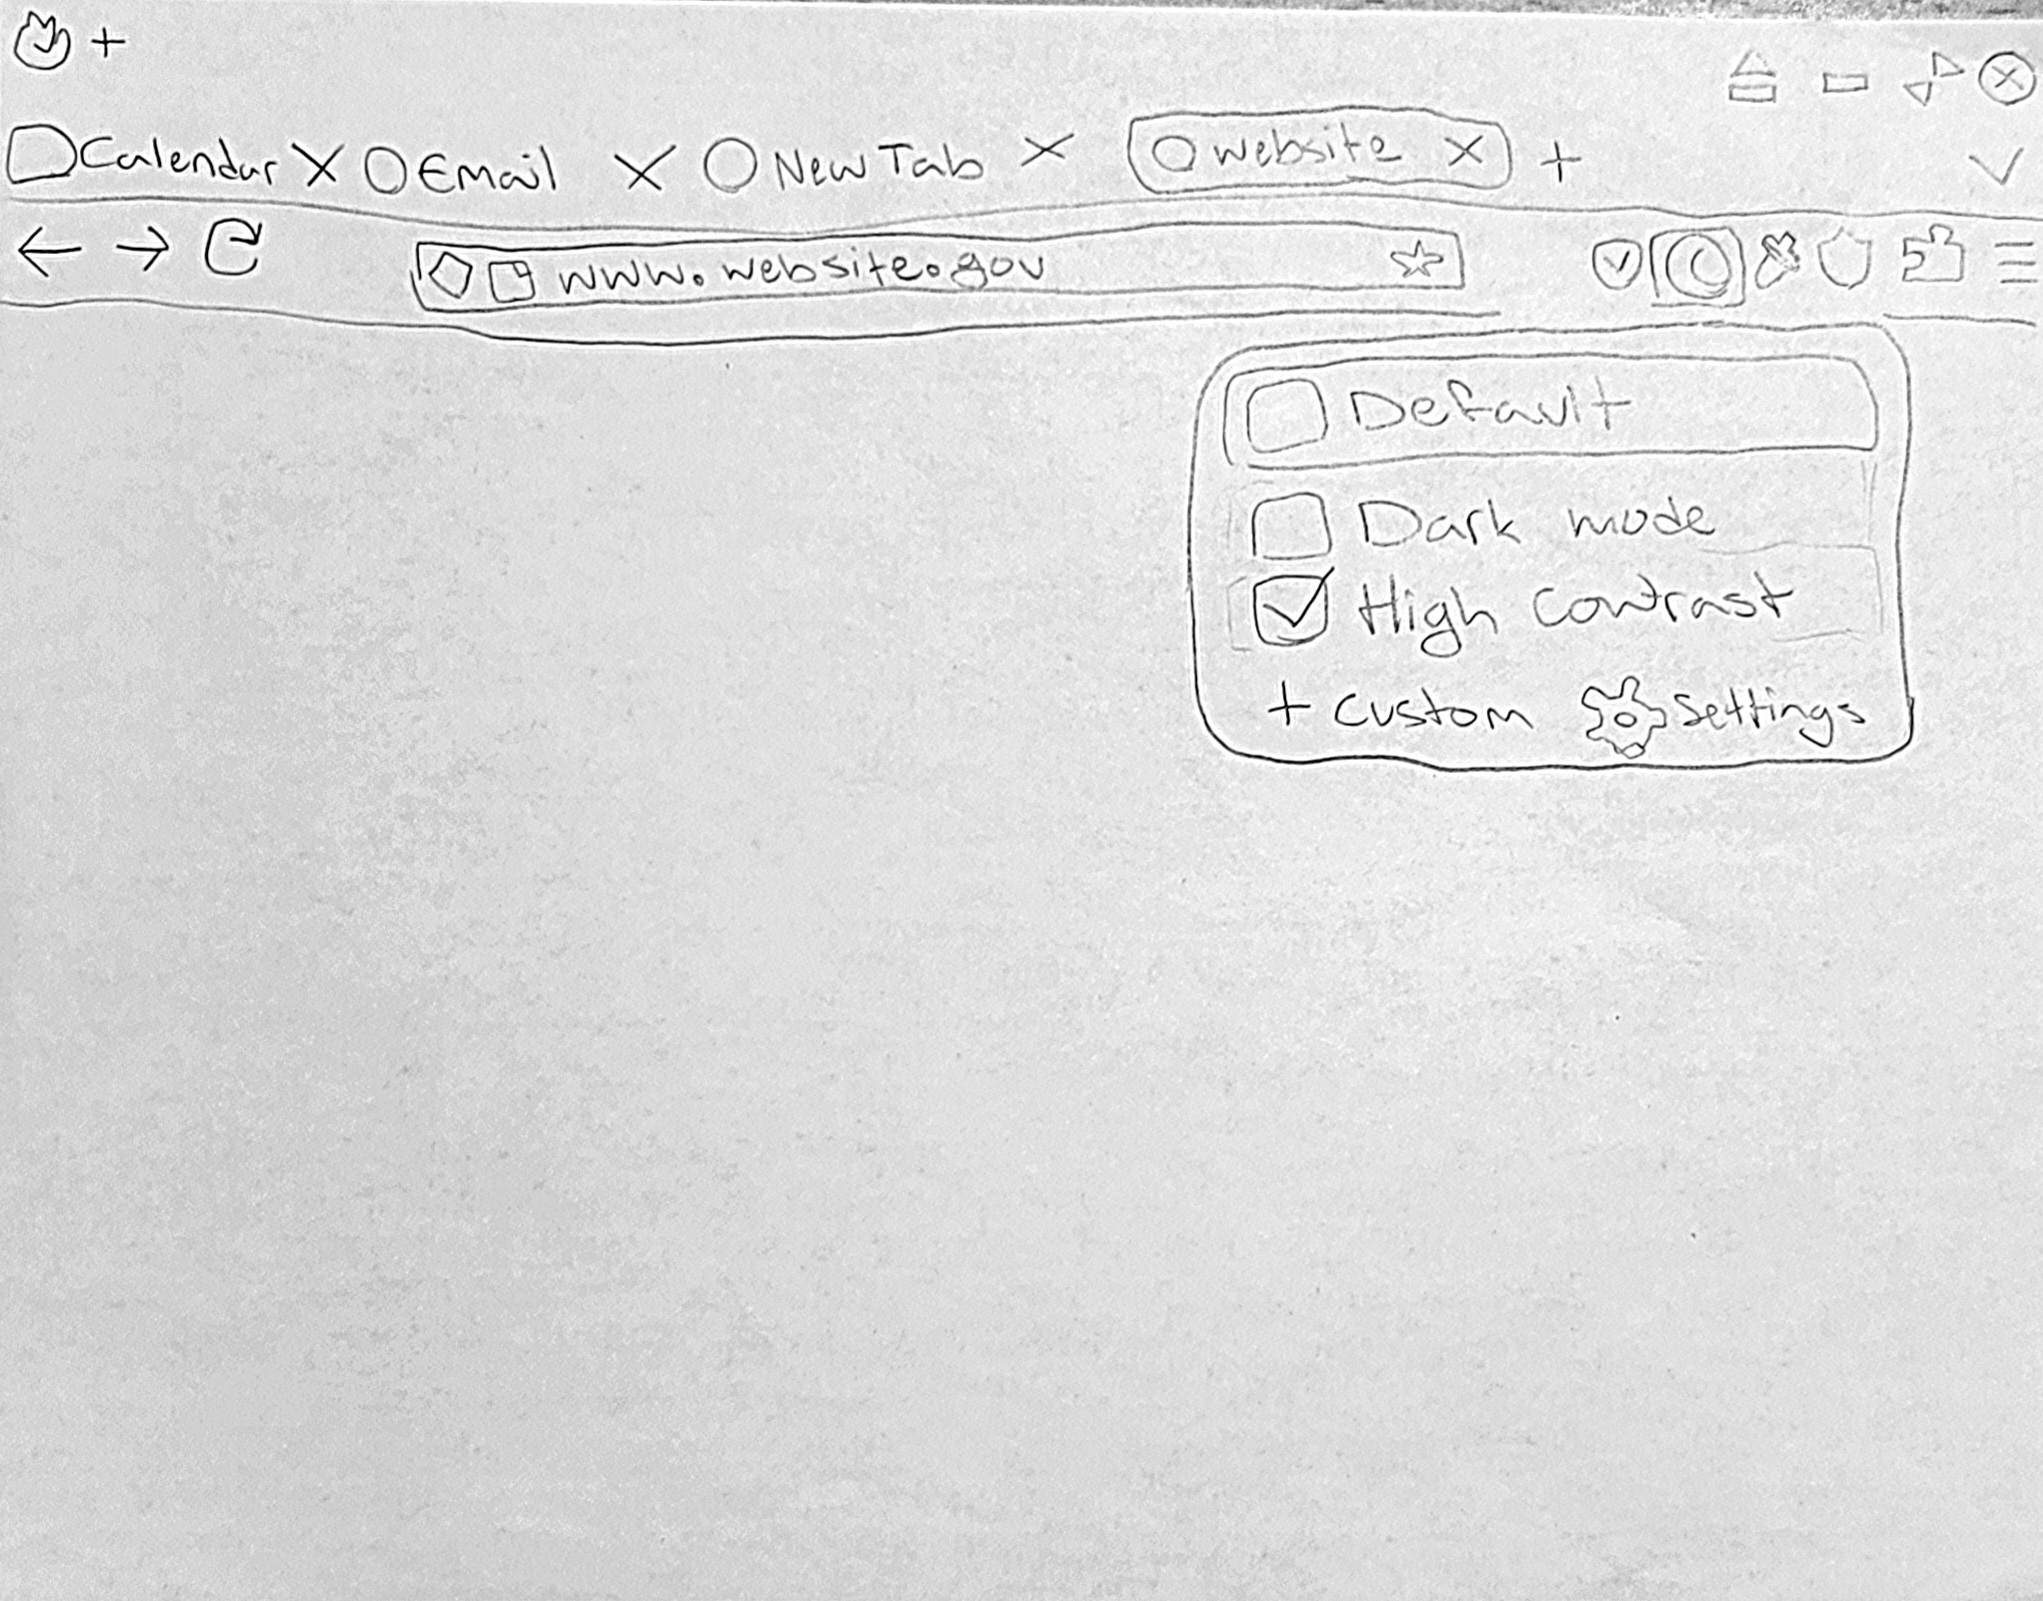 Calendar Email New Tab website
www.website.gov
Default
Dark mode
High contrast
+ custom settings